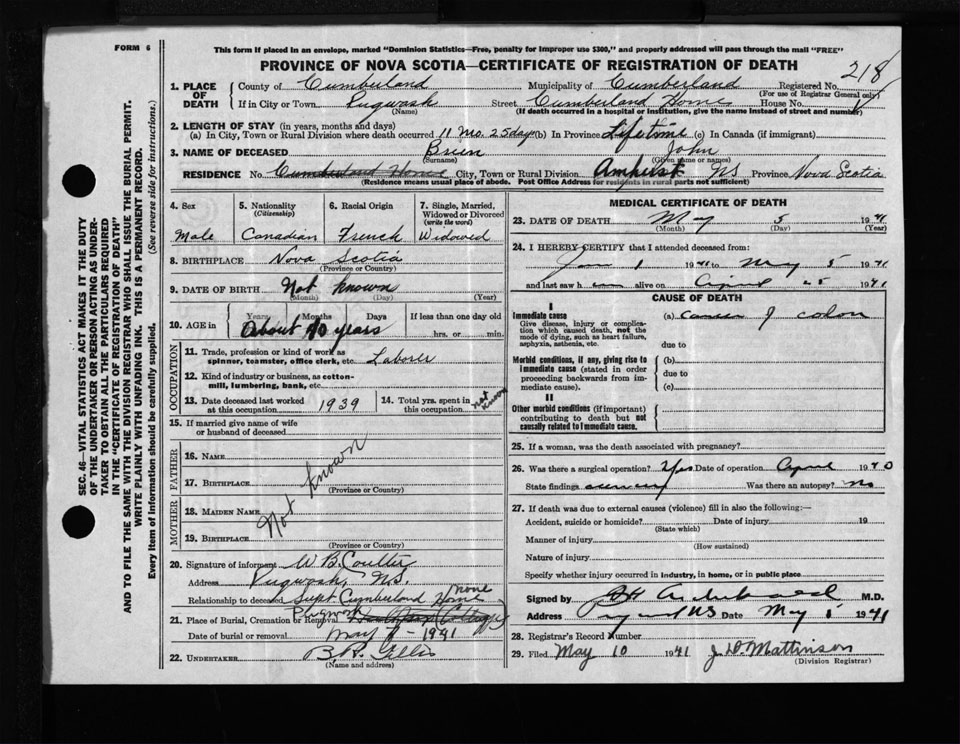 FORM 6
This form if placed in an envelope, marked "Dominion Statistics—Free, penalty for improper use $300," and properly addressed will pass through the mail "FREE"
PROVINCE OF NOVA SCOTIA—CERTIFICATE OF REGISTRATION OF DEATH
218
1. PLACE OF DEATH
County of Cumberland Municipality of Cumberland Registered No.
(For use of Registrar General only)
If in City or Town Pugwash Street Cumberland Home House No.
(Name) (If death occurred in a hospital or institution, give the name instead of street and number)
2. LENGTH OF STAY (in years, months and days)
(a) In City, Town or Rural Division where death occurred 11 Mo. 25 days (b) In Province Lifetime (c) In Canada (if immigrant)
3. NAME OF DECEASED Brien John
(Surname) (Given name or names)
RESIDENCE No. Cumberland Home City, Town or Rural Division Amherst NS Province Nova Scotia
(Residence means usual place of abode. Post Office Address for residents in rural parts not sufficient)
4. Sex Male
5. Nationality (Citizenship) Canadian
6. Racial Origin French
7. Single, Married, Widowed or Divorced (write the word) Widowed
8. BIRTHPLACE Nova Scotia
(Province or Country)
9. DATE OF BIRTH Not known
(Month) (Day) (Year)
10. AGE in Years Months Days If less than one day old
About 70 years hrs. or min.
OCCUPATION
11. Trade, profession or kind of work as spinner, teamster, office clerk, etc. Laborer
12. Kind of industry or business, as cotton-mill, lumbering, bank, etc.
13. Date deceased last worked at this occupation 1939
14. Total yrs. spent in this occupation Not known
15. If married give name of wife or husband of deceased
FATHER
16. Name
17. Birthplace
(Province or Country)
Not known
MOTHER
18. MAIDEN NAME
19. BIRTHPLACE
(Province or Country)
20. Signature of informant W B. Coulter
Address Pugwash, N.S.
Relationship to deceased none
Supt Cumberland Home
21. Place of Burial, Cremation or Removal Pugwash
Date of burial or removal May 7 - 1941
22. UNDERTAKER B R. Gillis
(Name and address)
MEDICAL CERTIFICATE OF DEATH
23. DATE OF DEATH May 5 1941
(Month) (Day) (Year)
24. I HEREBY CERTIFY that I attended deceased from:
Jan 1 1941 to May 5 1941
and last saw him alive on April 25 1941
CAUSE OF DEATH
I
Immediate cause (a) cancer of colon
Give disease, injury or complication which caused death, not the mode of dying, such as heart failure, asphyxia, asthenia, etc.
due to
Morbid conditions, if any, giving rise to immediate cause (stated in order proceeding backwards from immediate cause).
(b)
due to
(c)
II
Other morbid conditions (if important) contributing to death but not causally related to immediate cause.
25. If a woman, was the death associated with pregnancy?
26. Was there a surgical operation? Yes Date of operation April 1940
State findings Was there an autopsy? no
27. If death was due to external causes (violence) fill in also the following:—
Accident, suicide or homicide? Date of injury 19
(State which)
Manner of injury
(How sustained)
Nature of injury
Specify whether injury occurred in industry, in home, or in public place
Signed by M.D.
Address NS Date May 5 1941
28. Registrar's Record Number
29. Filed May 10 1941 J. D. Mattinson
(Division Registrar)
SEC. 46—VITAL STATISTICS ACT MAKES IT THE DUTY
OF THE UNDERTAKER OR PERSON ACTING AS UNDER-
TAKER TO OBTAIN ALL THE PARTICULARS REQUIRED
IN THE "CERTIFICATE OF REGISTRATION OF DEATH"
AND TO FILE THE SAME WITH THE DIVISION REGISTRAR WHO SHALL ISSUE THE BURIAL PERMIT.
WRITE PLAINLY WITH UNFADING INK. THIS IS A PERMANENT RECORD.
Every item of Information should be carefully supplied. (See reverse side for instructions.)